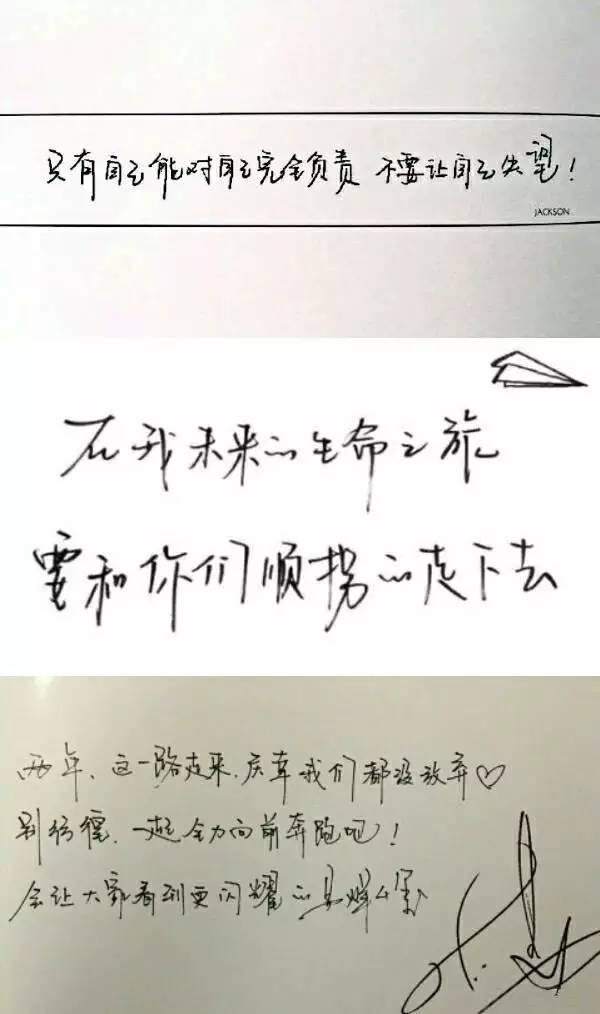 只有自己能对自己完全负责 不要让自己失望!
JACKSON
在我未来的生命之旅
要和你们顺拐的走下去
两年,这一路走来,庆幸我们都没放弃♡
别彷徨,一起全力向前奔跑吧!
会让大家看到更闪耀的易烊千玺